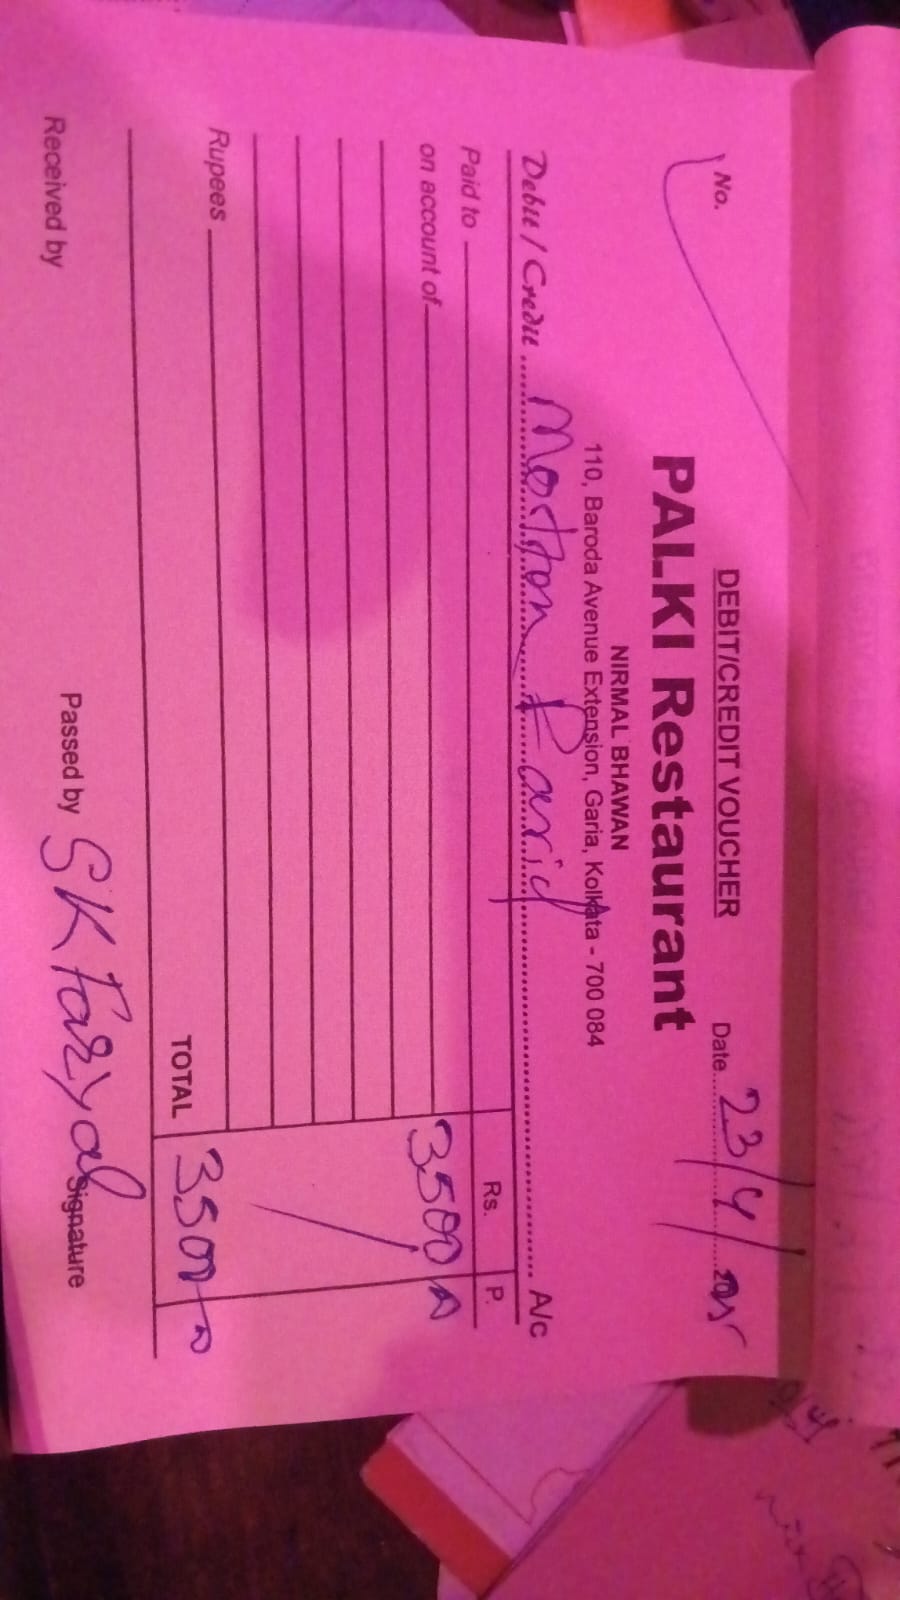 DEBIT/CREDIT VOUCHER
No. Date 23/4/2025
PALKI Restaurant
NIRMAL BHAWAN
110, Baroda Avenue Extension, Garia, Kolkata - 700 084
Debit / Credit Mortton Paid A/c
Rs. P.
Paid to
on account of 3500
Rupees
TOTAL 3500
Received by Passed by SK Faryad Signature